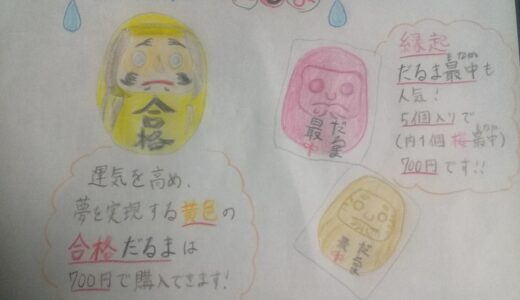 合格
運気を高め、
夢を実現する黄色の
合格だるまは
700円で購入できます!
だるま
最中
縁起
だるま最中も
人気!
5個入りで
(内1個 桜最中)
700円です!!
だるま
最中